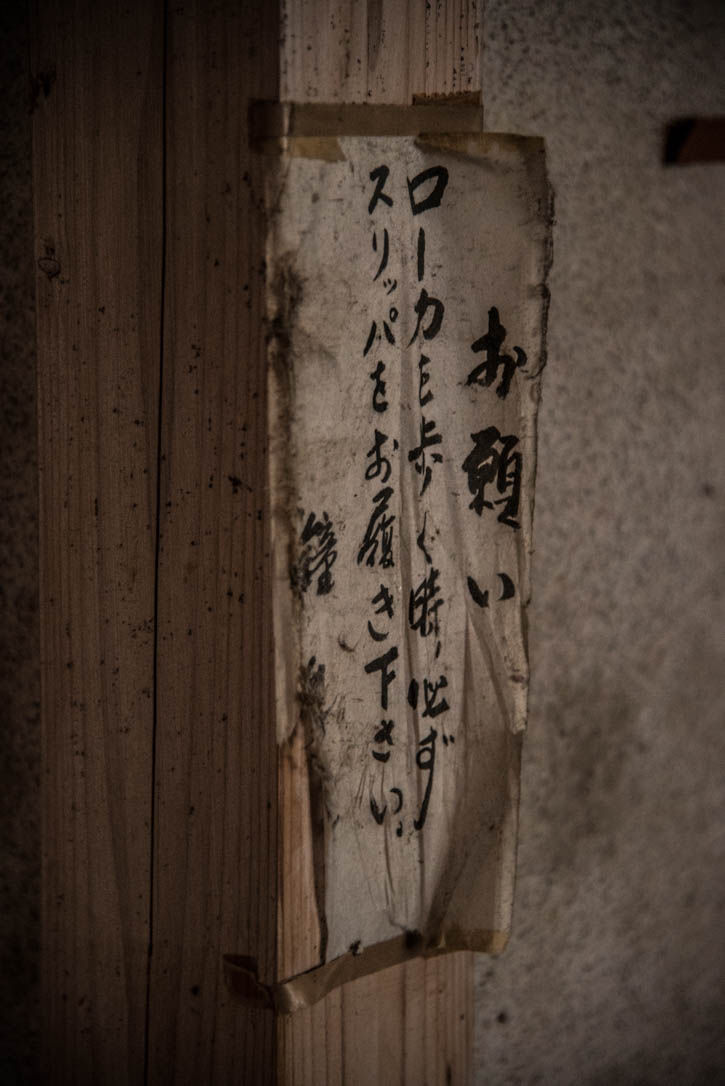 お願い
ローカを歩く時、必ず
スリッパをお履き下さい。
鐘